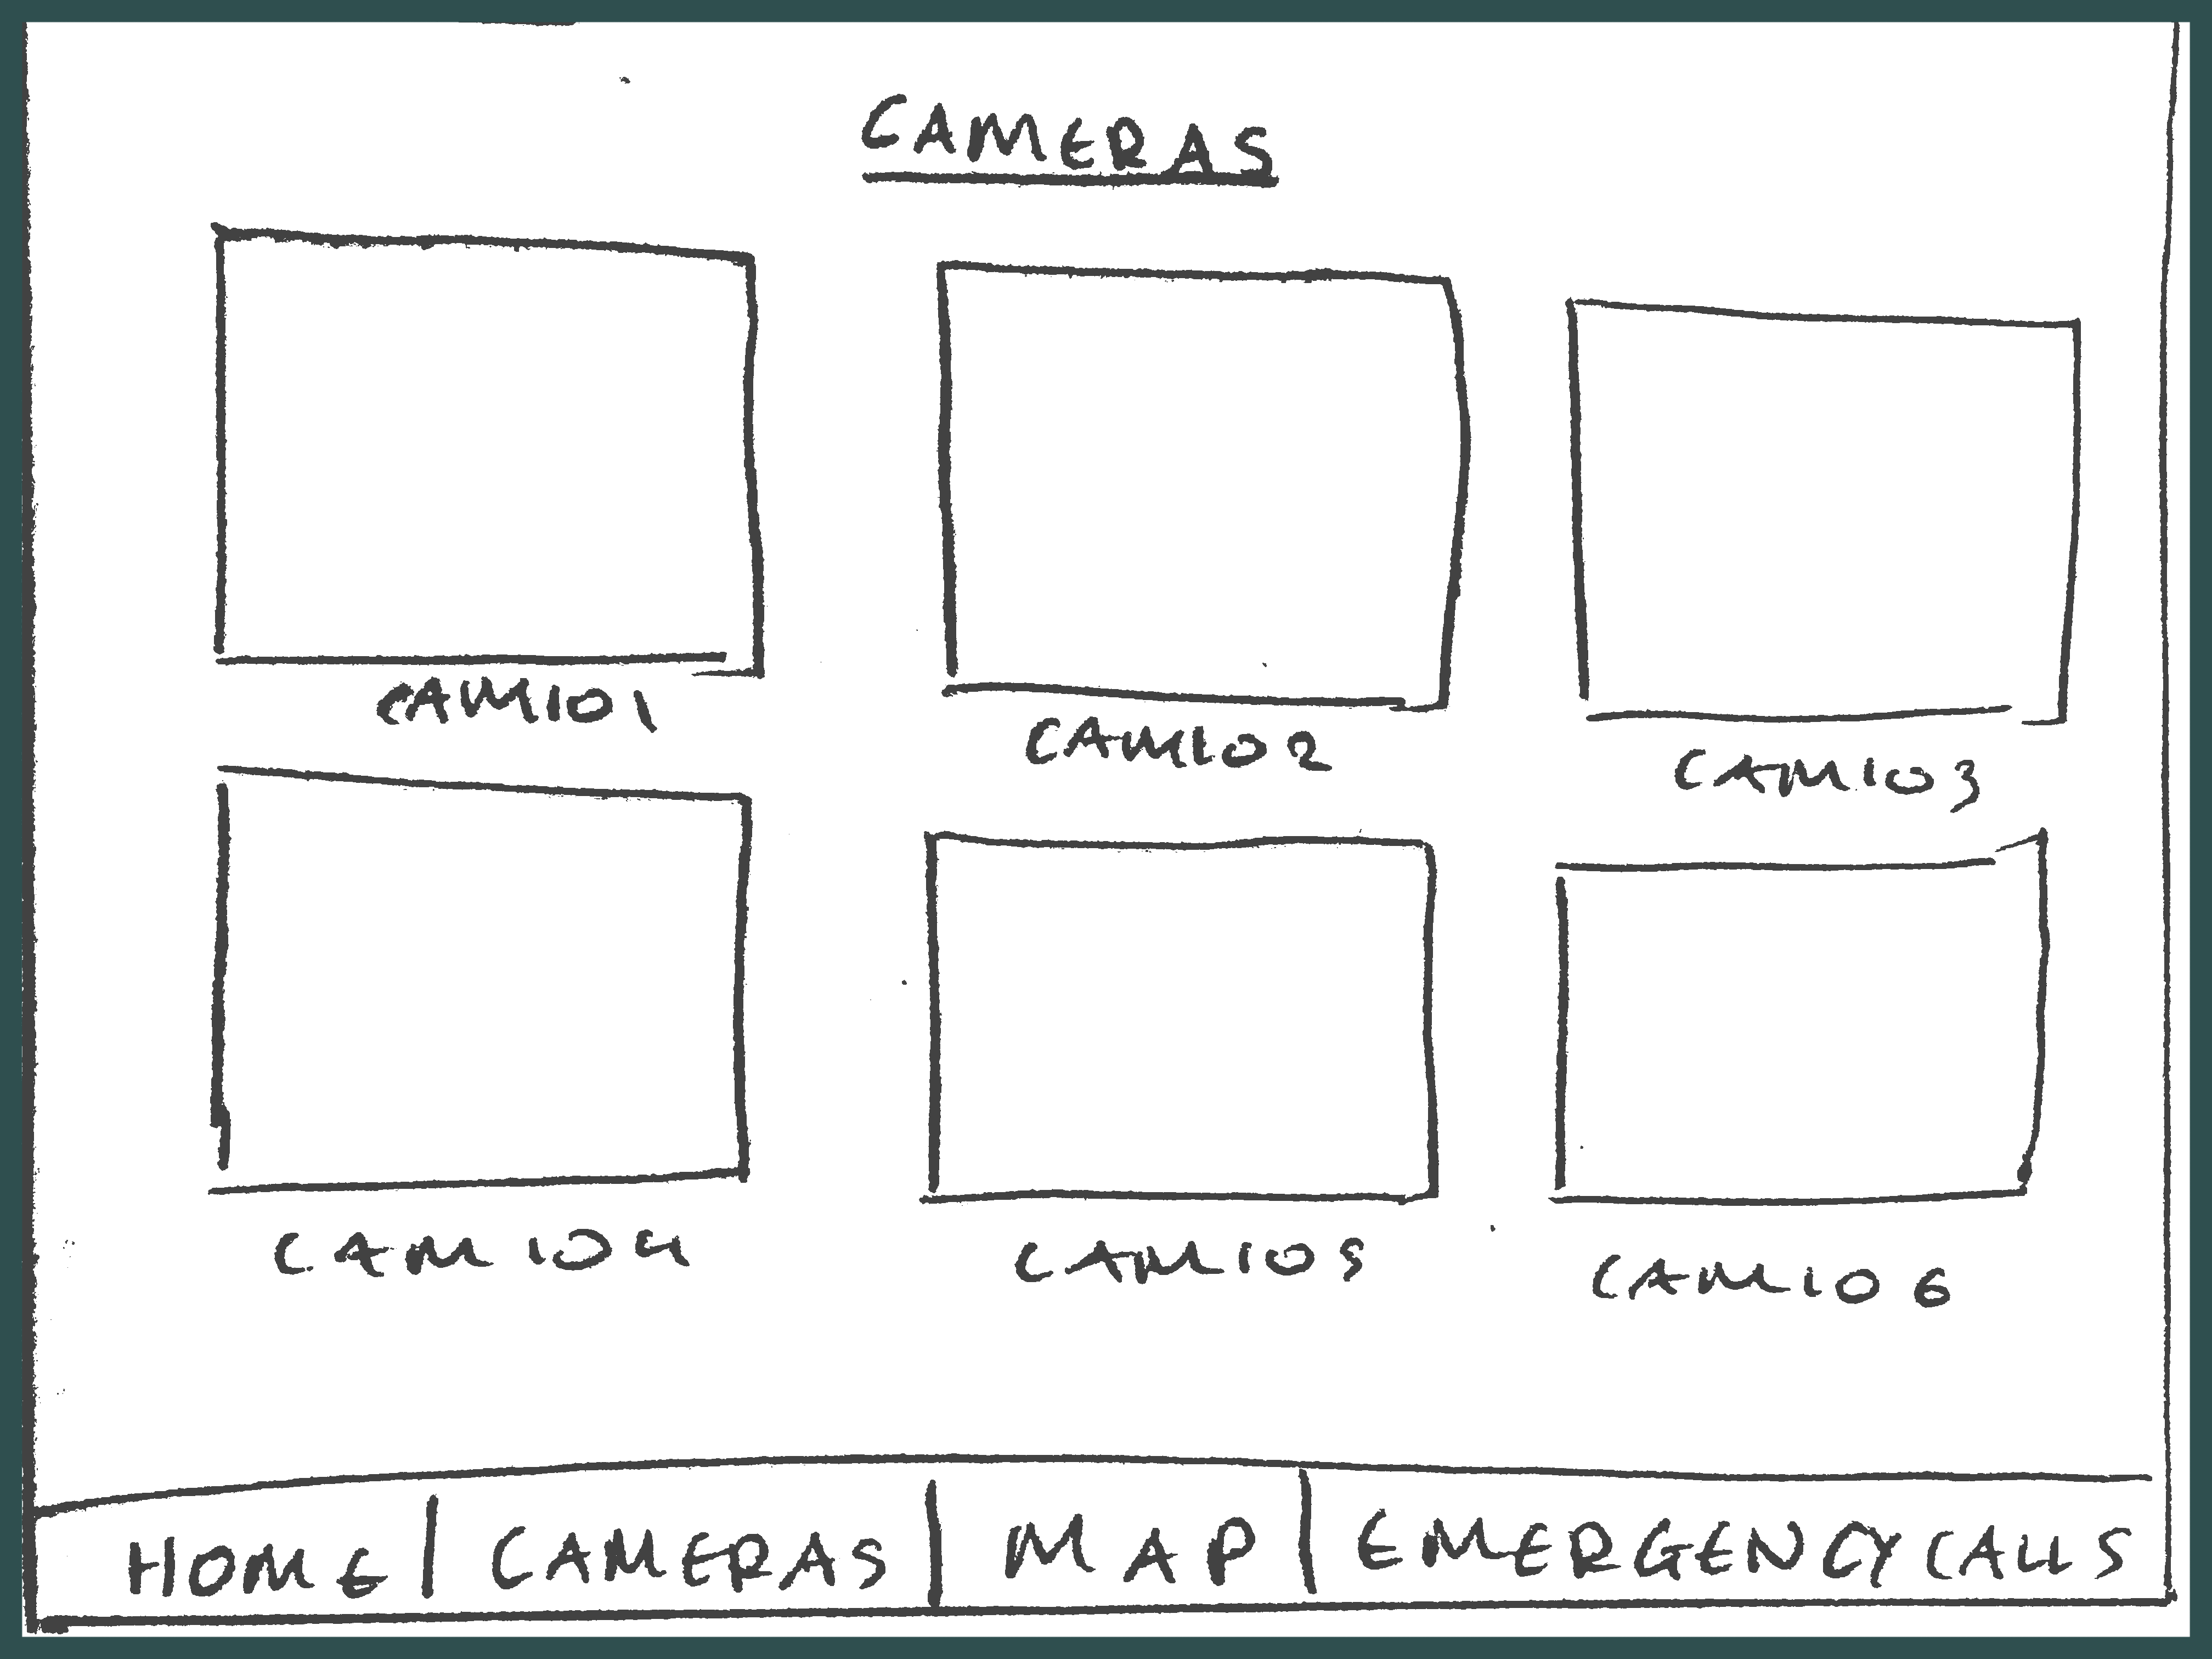 CAMERAS
CAM101
CAM102
CAM103
CAM104
CAM105
CAM106
HOME | CAMERAS | MAP | EMERGENCY CALLS